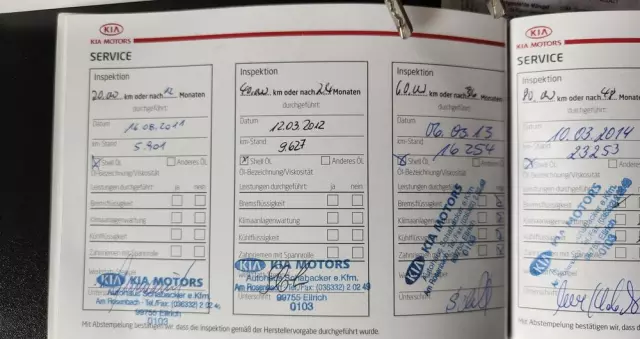 KIA
KIA MOTORS
SERVICE
Inspektion
20.000 km oder nach 12 Monaten
durchgeführt:
Datum
16.08.2011
km-Stand
5.901
Shell Öl Anderes Öl
Öl-Bezeichnung/Viskosität
Leistungen durchgeführt: ja nein
Bremsflüssigkeit
Klimaanlagenwartung
Kühlflüssigkeit
Zahnriemen mit Spannrolle
KIA KIA MOTORS
Autohaus Schabacker e.Kfm.
99755 Ellrich
0103
Inspektion
40.000 km oder nach 24 Monaten
durchgeführt:
Datum
12.03.2012
km-Stand
9.627
Shell Öl Anderes Öl
Öl-Bezeichnung/Viskosität
Leistungen durchgeführt: ja nein
Bremsflüssigkeit
Klimaanlagenwartung
Kühlflüssigkeit
Zahnriemen mit Spannrolle
KIA KIA MOTORS
Autohaus Schabacker e.Kfm.
99755 Ellrich
0103
Inspektion
60.000 km oder nach 36 Monaten
durchgeführt:
Datum
06.03.13
km-Stand
16254
Shell Öl Anderes Öl
Öl-Bezeichnung/Viskosität
Leistungen durchgeführt: ja nein
Bremsflüssigkeit
Klimaanlagenwartung
Kühlflüssigkeit
KIA
Unterschrift
Mit Abstempelung bestätigen wir, dass die Inspektion gemäß der Herstellervorgabe durchgeführt wurde.
KIA
KIA MOTORS
SERVICE
Inspektion
80.000 km oder nach 48
durchgeführt:
Datum
10.03.2014
km-Stand
23253
Shell Öl
Öl-Bezeichnung/Viskosität
Leistungen durchgeführt:
Bremsflüssigkeit
KIA
Mit Abstempelung bestätigen wir, dass